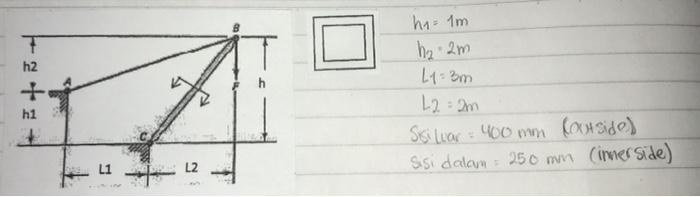 B
h2
A
h
F
h1
C
L1
L2
h1 = 1m
h2 = 2m
L1 = 3m
L2 = 2m
Sisi luar = 400 mm (outside)
Sisi dalam = 250 mm (innerside)